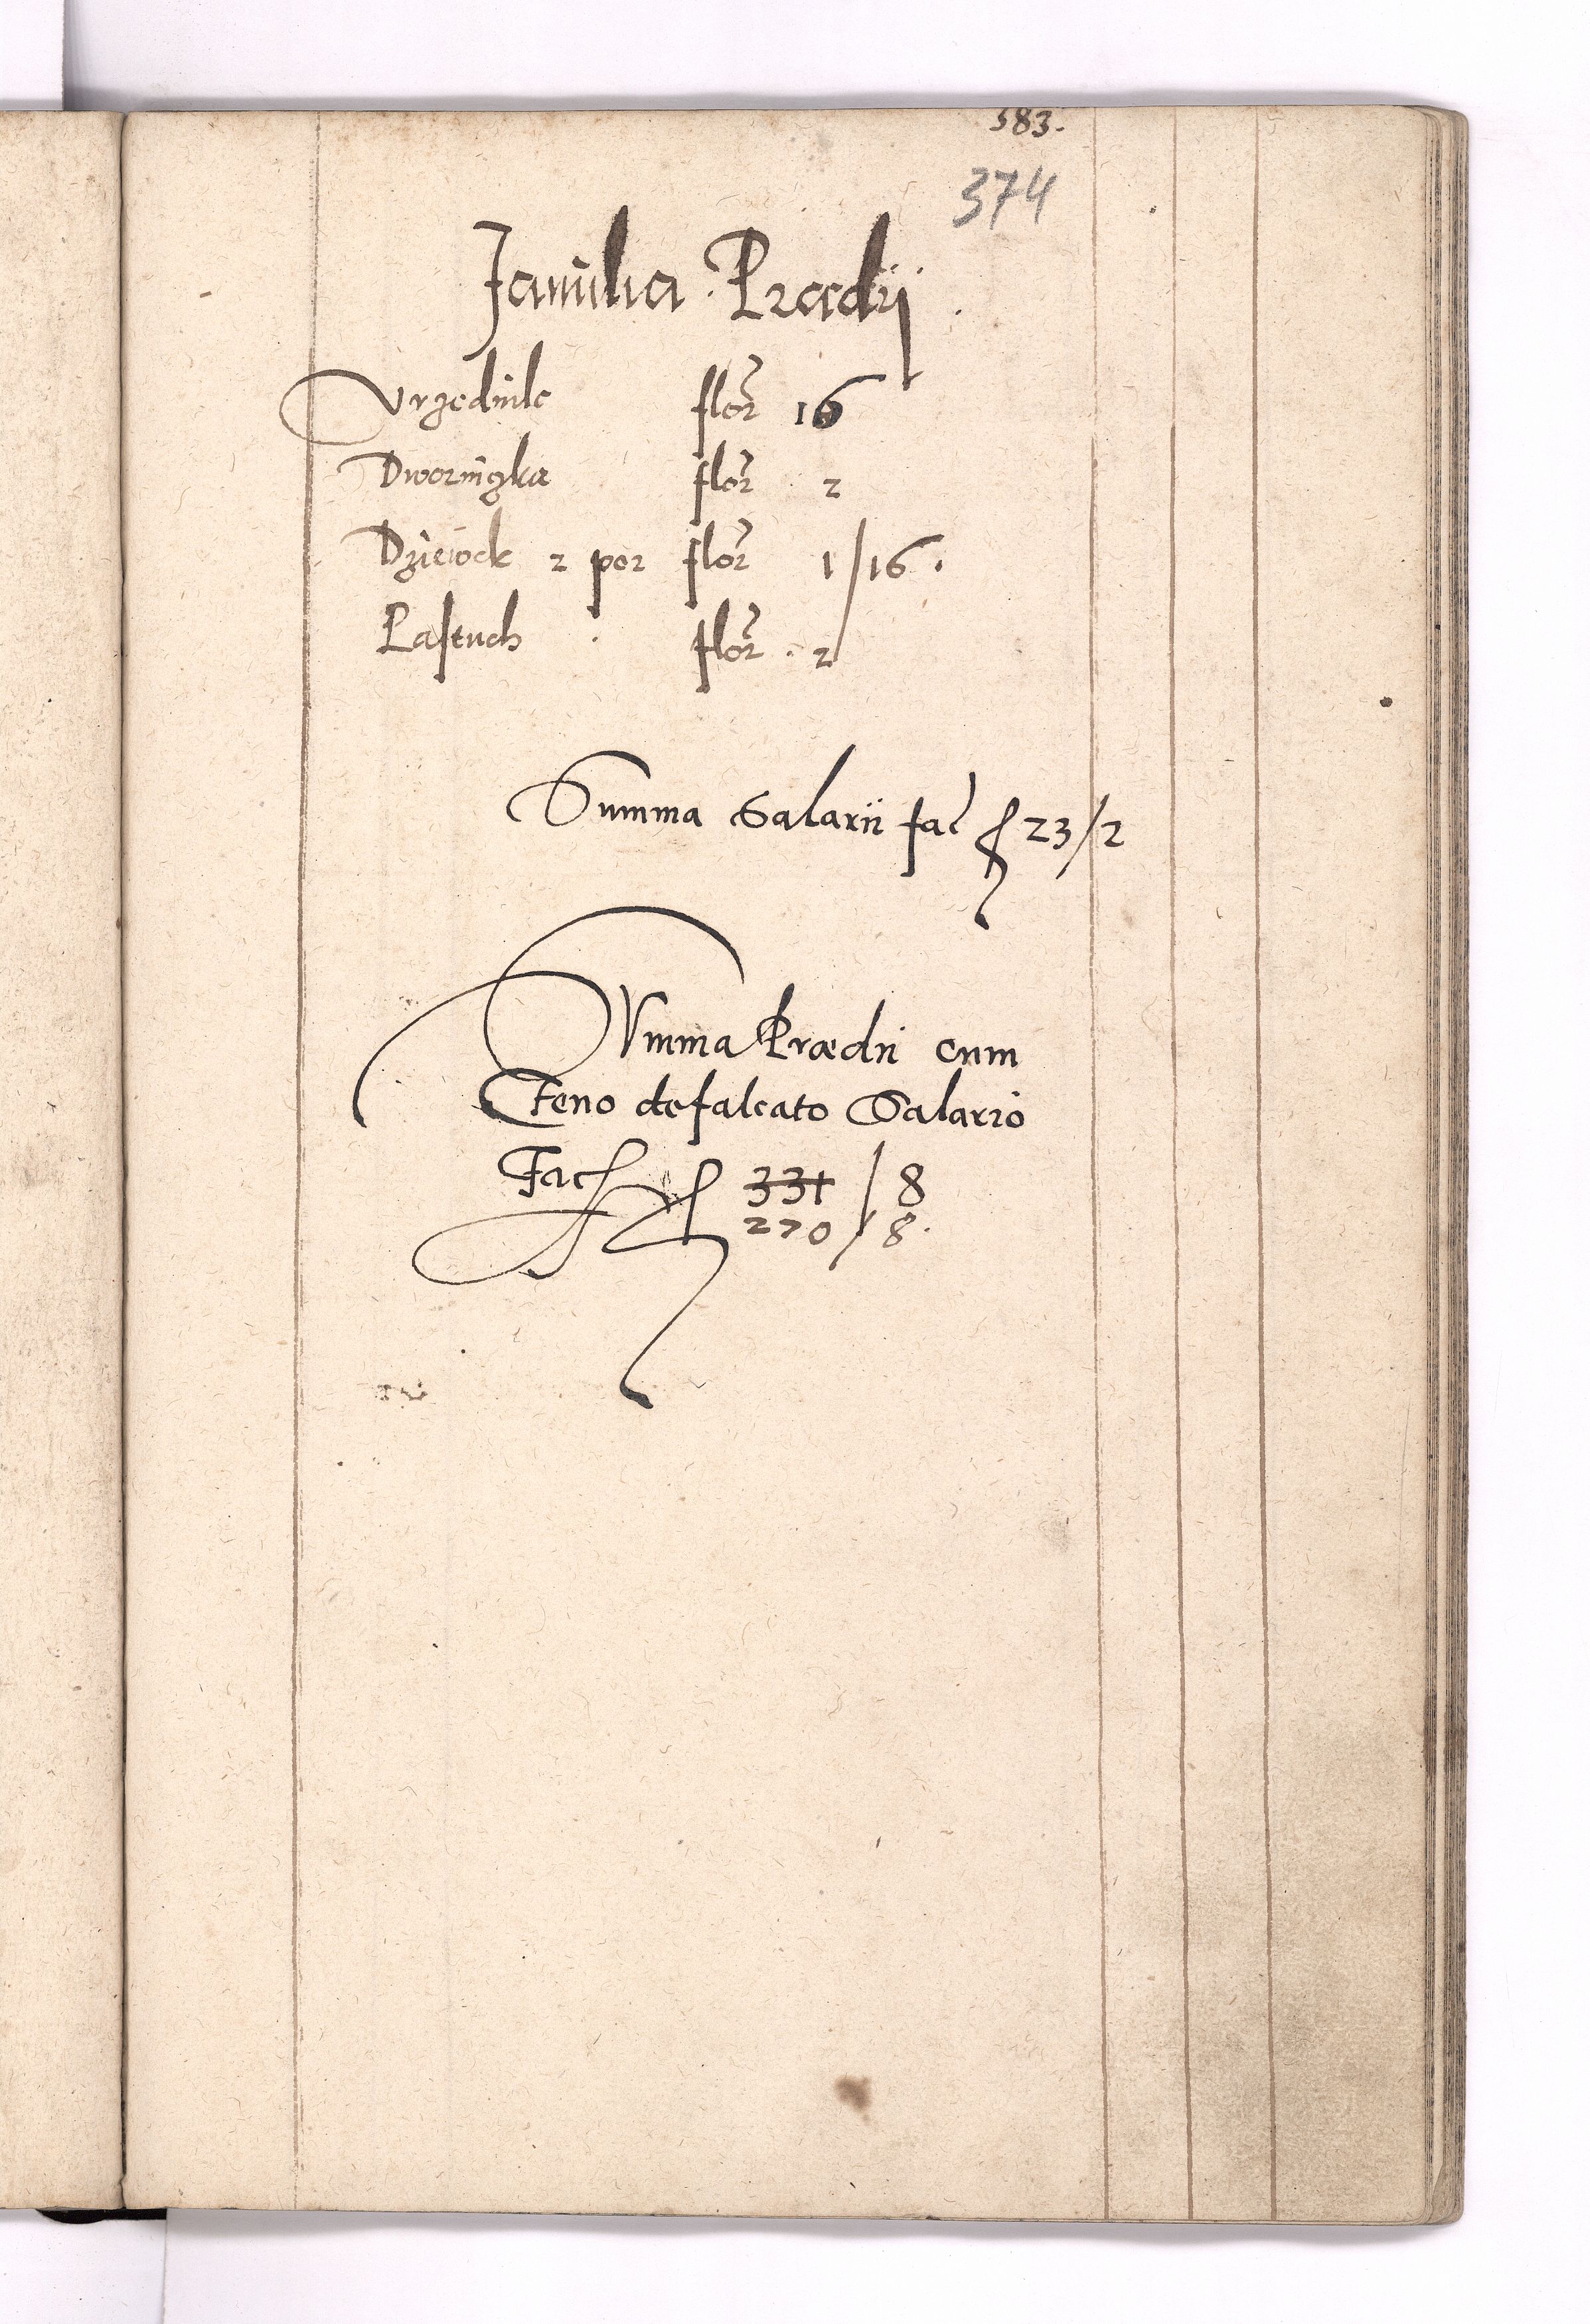 583.
374
Familia Prædij.
Vrzednik flor 16
Dworniczka flor 2
Dziewek 2 por flor 1/16.
Pastuch flor 2
Summa Salarii fac f 23/2
SVmma Prædii cum
Feno defalcato Salario
Fac f 331/8
270/8.